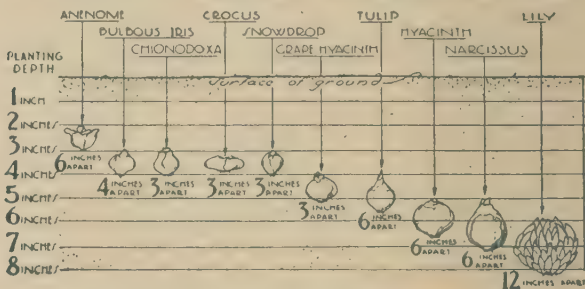 ANENOME CROCUS TULIP LILY
BULBOUS IRIS SNOWDROP HYACINTH
CHIONODOXA GRAPE HYACINTH NARCISSUS
PLANTING
DEPTH
Surface of ground
1 INCH
2 INCHES
3 INCHES
4 INCHES
5 INCHES
6 INCHES
7 INCHES
8 INCHES
6 INCHES
APART
4 INCHES
APART
3 INCHES
APART
3 INCHES
APART
3 INCHES
APART
3 INCHES
APART
6 INCHES
APART
6 INCHES
APART
6 INCHES
APART
12 INCHES APART